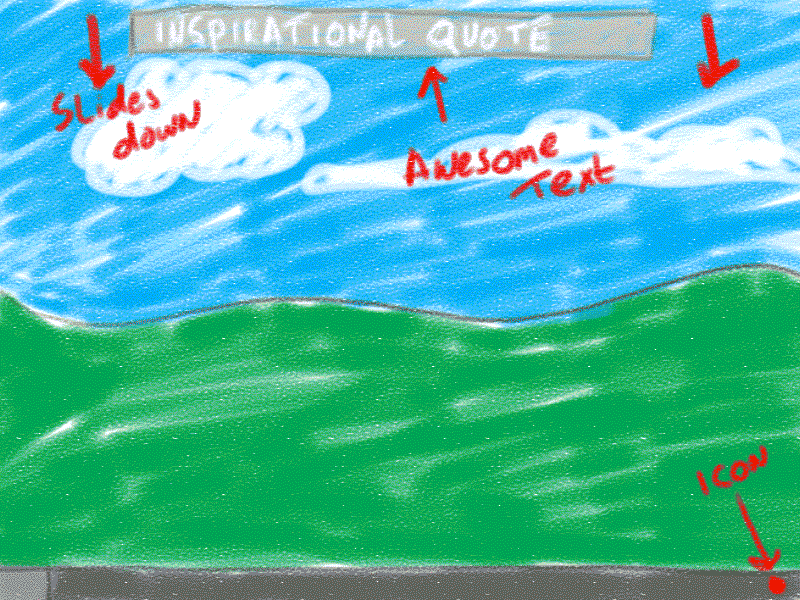 INSPIRATIONAL QUOTE
Slides
down
Awesome
Text
ICON